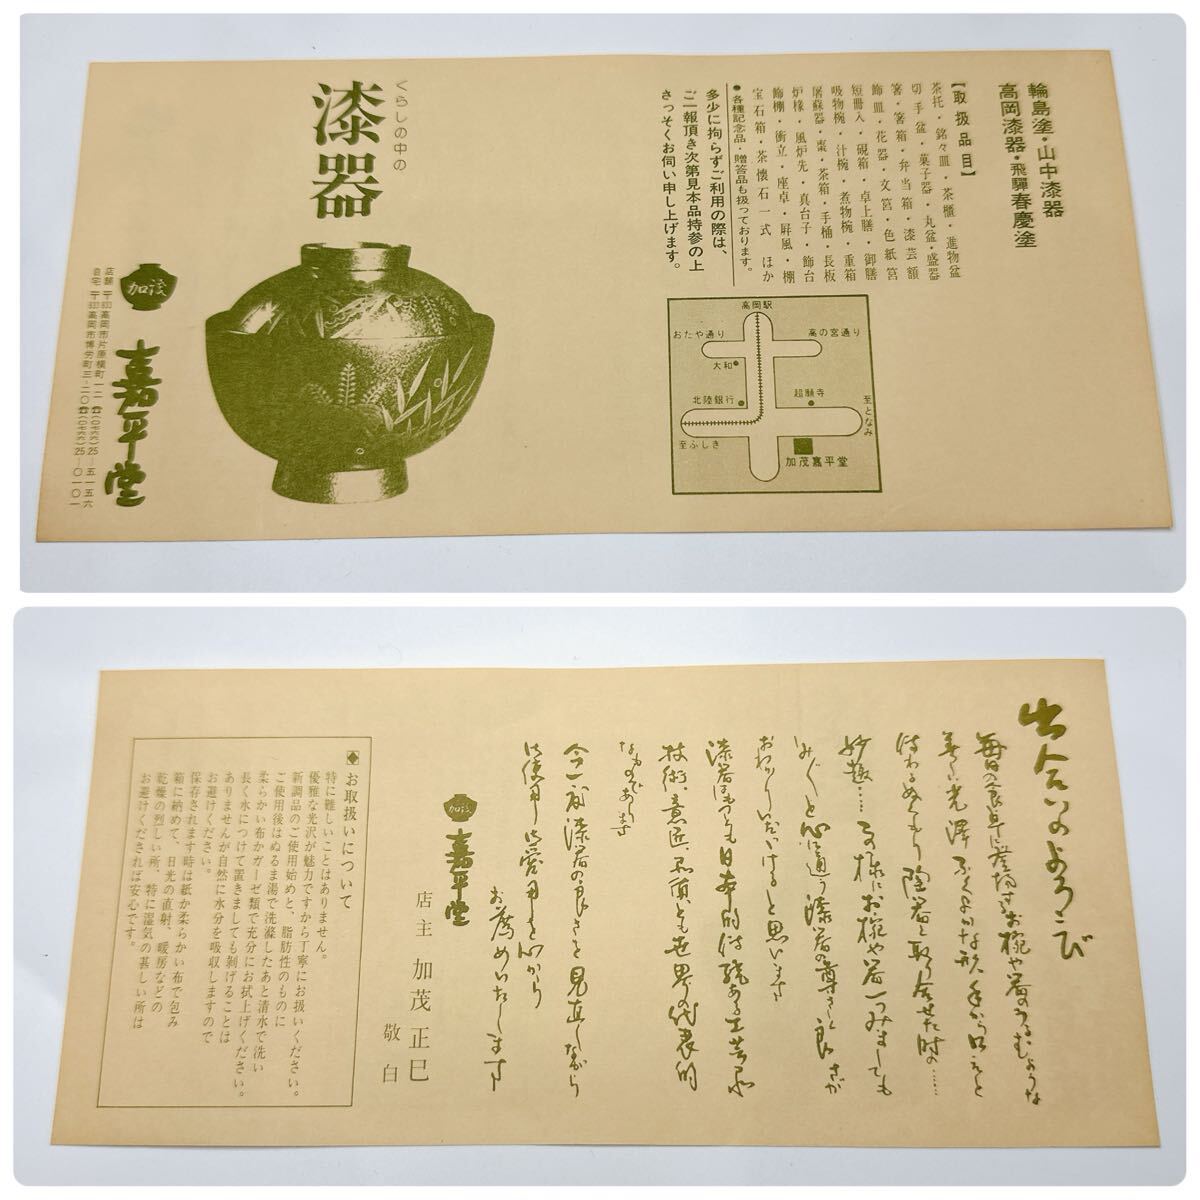 輪島塗・山中漆器
高岡漆器・飛騨春慶塗
【取扱品目】
茶托・銘々皿・茶櫃・進物盆
切手盆・菓子器・丸盆・盛器
箸・箸箱・弁当箱・漆芸額
飾皿・花器・文宮・色紙宮
短冊入・硯箱・卓上膳・御膳
吸物椀・汁椀・煮物椀・重箱
屠蘇器・棗・茶箱・手桶・長板
炉椽・風炉先・真台子・飾台
飾棚・衝立・座卓・屏風・棚
宝石箱・茶懐石一式 ほか
●各種記念品・贈答品も扱っております。
多少に拘らずご利用の際は、
ご一報頂き次第見本品持参の上
さっそくお伺い申し上げます。
高岡駅
おたや通り
高の宮通り
大和
北陸銀行
超願寺
至となみ
至ふしき
加茂嘉平堂
くらしの中の
漆器
加茂
嘉平堂
店舗 〒933 高岡市片原横町一二 ☎(〇七六六)25―五一五六
自宅 〒933 高岡市博労町三―二〇 ☎(〇七六六)25―〇一〇一
出合いのよろこび
毎日の食卓に登場するお椀や器のうるむような
美しい光沢 ふくよかな形 手から口えと
伝わるぬくもり 陶器と取り合せた時の……
妙趣…… この様にお椀や器一つみましても
しみじみと心に通う漆器の尊さと良さが
おわかりいただけると思います
漆器はもっとも日本的伝統ある工芸品
技術、意匠、品質とも世界の代表的
なものであります
今一度漆器の良さを見直しながら
御使用 御愛用を心から
お薦めいたします
加茂
嘉平堂
店主 加茂正巳
敬白
◆お取扱いについて
特に難しいことはありません。
優雅な光沢が魅力ですから丁寧にお扱いください。
新調品のご使用始めと、脂肪性のものに
ご使用後はぬるま湯で洗滌したあと清水で洗い
柔らかい布かガーゼ類で充分にお拭上げください。
長く水につけて置きましても剥げることは
ありませんが自然に水分を吸収しますので
お避けください。
保存されます時は紙か柔らかい布で包み
箱に納めて、日光の直射、暖房などの
乾燥の烈しい所、特に湿気の甚しい所は
お避けくだされば安心です。